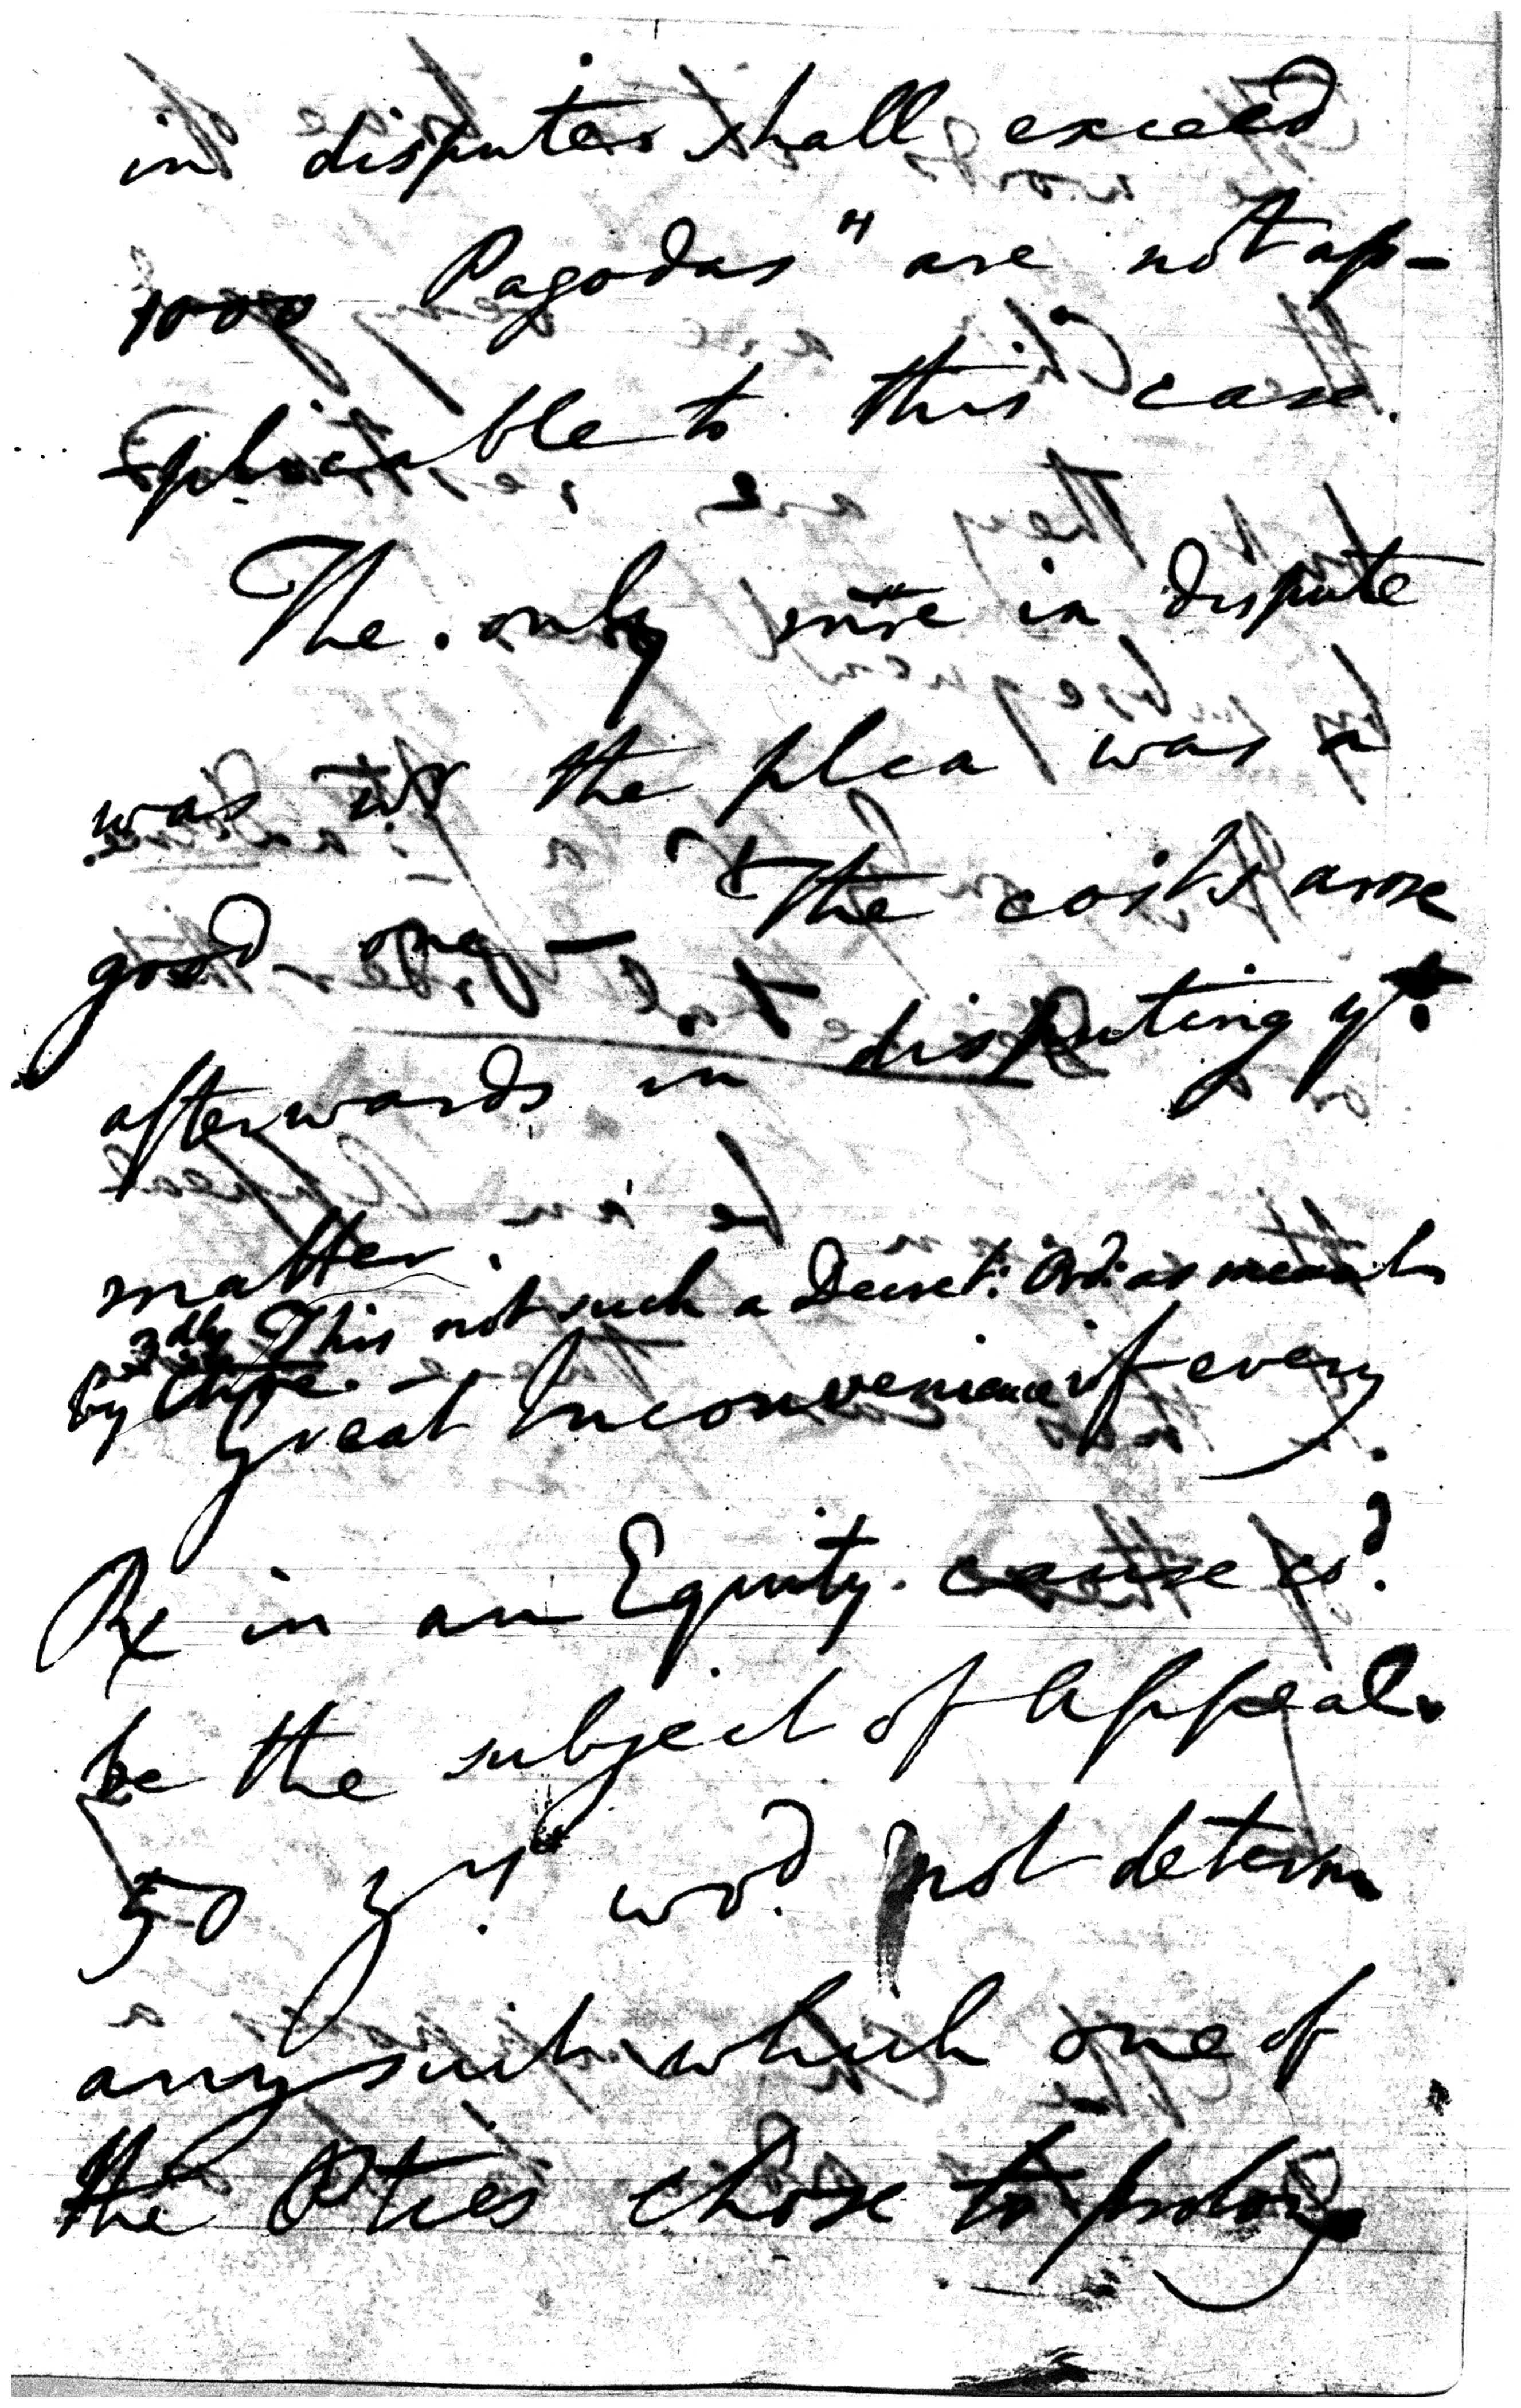 in disputes shall exceed
1000 Pagodas" are not ap-
plicable to this case.
The only in dispute
was the plea was a
good one — The costs arose
afterwards in disputing yt.
matter.
3dly This not such a Decret: Ord: as meant
by
Great Inconvenience if every
Rx in an Equity cause cod.
be the subject of Appeal.
50 yrs. wod. not determ
any suit which one of
the Pties chose to prolong